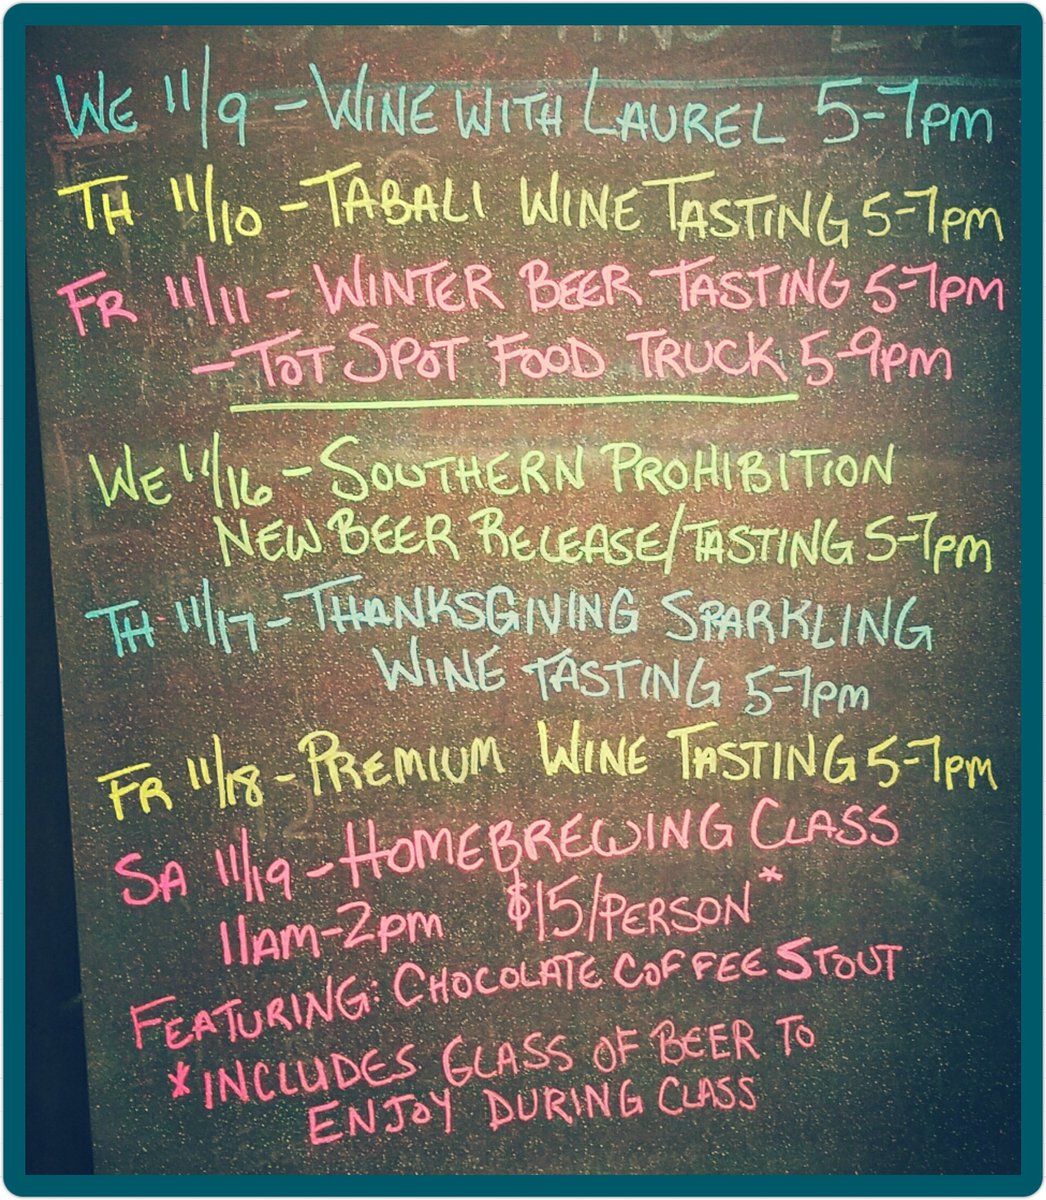 WE 11/9 - WINE WITH LAUREL 5-7PM
TH 11/10 - TABALI WINE TASTING 5-7PM
FR 11/11 - WINTER BEER TASTING 5-7PM
- TOT SPOT FOOD TRUCK 5-9PM
WE 11/16 - SOUTHERN PROHIBITION
NEW BEER RELEASE/TASTING 5-7PM
TH 11/17 - THANKSGIVING SPARKLING
WINE TASTING 5-7PM
FR 11/18 - PREMIUM WINE TASTING 5-7PM
SA 11/19 - HOMEBREWING CLASS
11AM-2PM $15/PERSON*
FEATURING: CHOCOLATE COFFEE STOUT
*INCLUDES GLASS OF BEER TO
ENJOY DURING CLASS